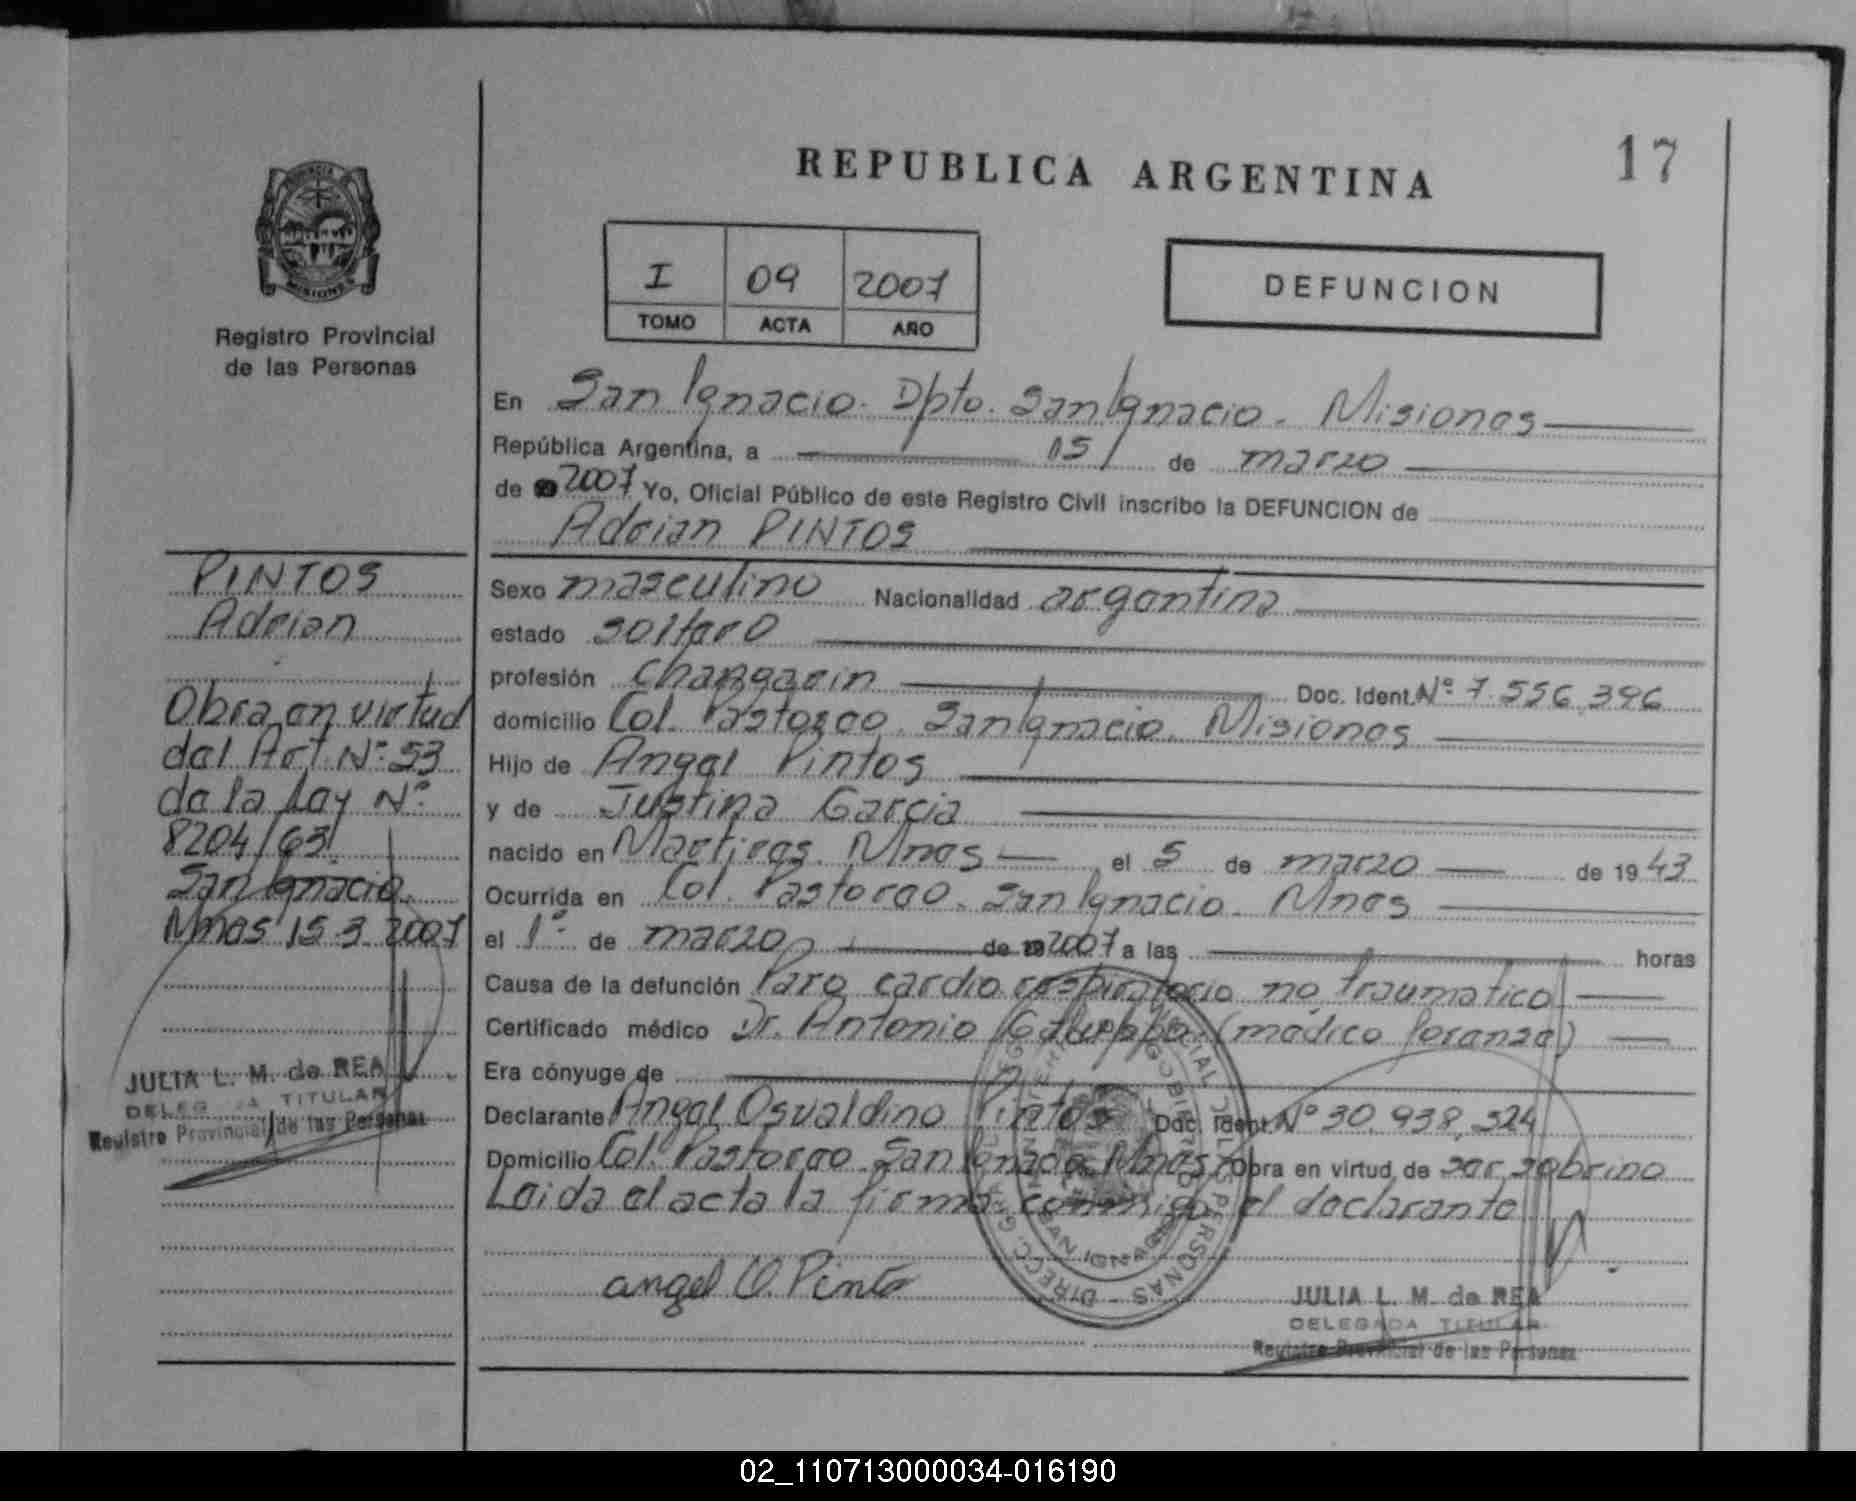 REPUBLICA ARGENTINA
17
PROVINCIA
MISIONES
Registro Provincial
de las Personas
I 09 2007
TOMO ACTA AÑO
DEFUNCION
En San Ignacio. Dpto. San Ignacio. Misiones
República Argentina, a 15 de marzo
de 2007 Yo, Oficial Público de este Registro Civil inscribo la DEFUNCION de
Adrian PINTOS
Sexo masculino Nacionalidad argentina
estado soltero
profesión Changarin Doc. Ident. Nº 7.556.396
domicilio Col. Pastoreo. San Ignacio. Misiones
Hijo de Angel Pintos
y de Justina Garcia
nacido en Martires. Mnes el 5 de marzo de 1943
Ocurrida en Col. Pastoreo. San Ignacio. Mnes
el 1º de marzo de 2007 a las horas
Causa de la defunción Paro cardio respiratorio no traumatico
Certificado médico Dr. Antonio (medico forense)
Era cónyuge de
Declarante Angel Osvaldino Pintos Doc. Ident. Nº 30.938.324
Domicilio Col. Pastoreo. San Ignacio Mnes Obra en virtud de ser sobrino
Leida el acta la firma conmigo el declarante
angel O. Pinto
JULIA L. M. de REA
DELEGADA TITULAR
Registro Provincial de las Personas
PINTOS
Adrian
Obra en virtud
del Art. Nº 53
de la Ley Nº
8204/63
San Ignacio
Mnes 15 3 2007
JULIA L. M. de REA
DELEGADA TITULAR
Registro Provincial de las Personas
02_110713000034-016190